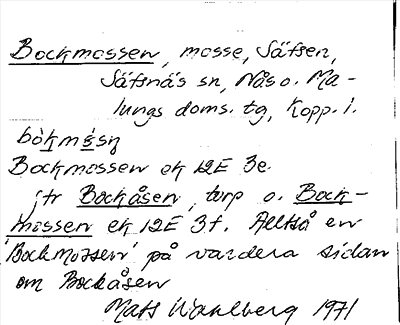 Bockmossen, mosse, Säfsen,
Säfsnäs sn, Nås o. Ma-
lungs doms. tg, Kopp. l.
bòkmósn
Bockmossen ek 12E 3e.
jfr Bockåsen, torp o. Bock-
mossen ek 12E 3f. Alltså en
'Bockmossen' på vardera sidan
om Bockåsen
Mats Wahlberg 1971